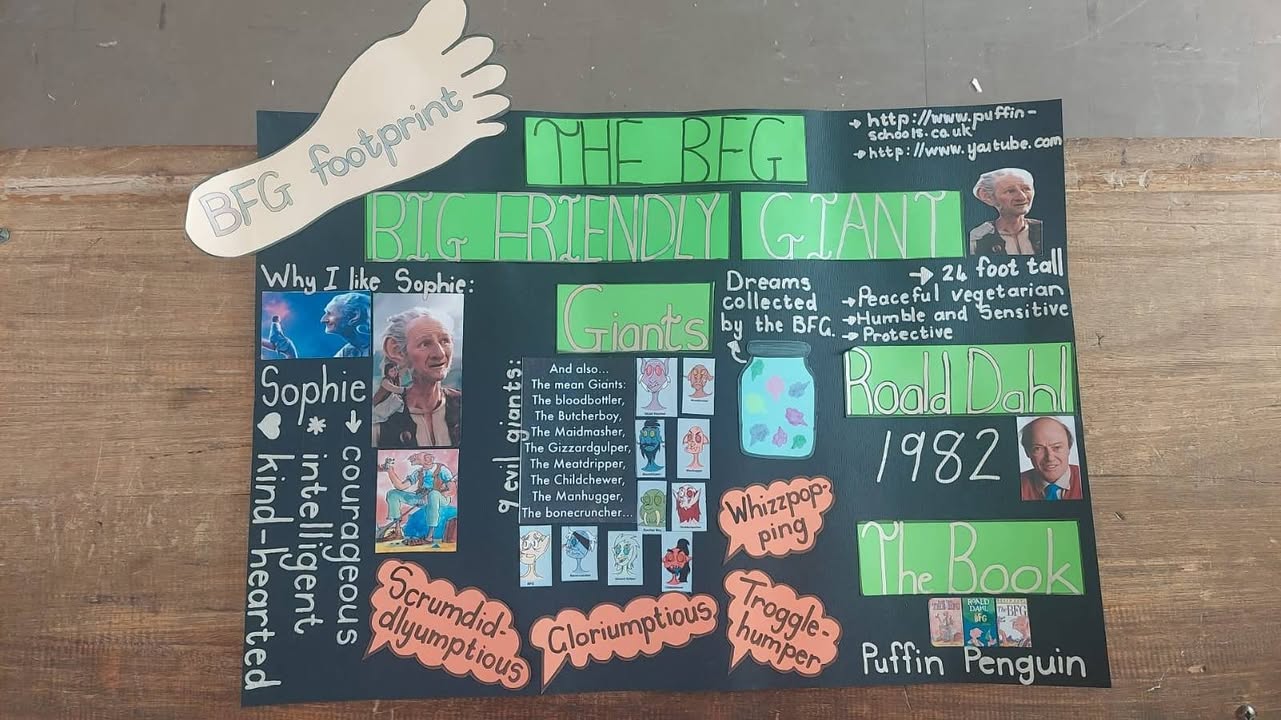 BFG footprint
THE BFG
BIG FRIENDLY GIANT
→ http://www.puffin-
schools.co.uk
→ http://www.yaitube.com
→ 24 foot tall
→ Peaceful vegetarian
→ Humble and Sensitive
→ Protective
Why I like Sophie:
Sophie
♥ kind-hearted
* intelligent
→ courageous
Giants
9 evil giants:
And also...
The mean Giants:
The bloodbottler,
The Butcherboy,
The Maidmasher,
The Gizzardgulper,
The Meatdripper,
The Childchewer,
The Manhugger,
The bonecruncher...
Dreams
collected
by the BFG.
Roald Dahl
1982
Whizzpop-
ping
Scrumdid-
dlyumptious
Gloriumptious
Troggle-
humper
The Book
THE BFG
ROALD
DAHL
BFG
The BFG
Puffin Penguin